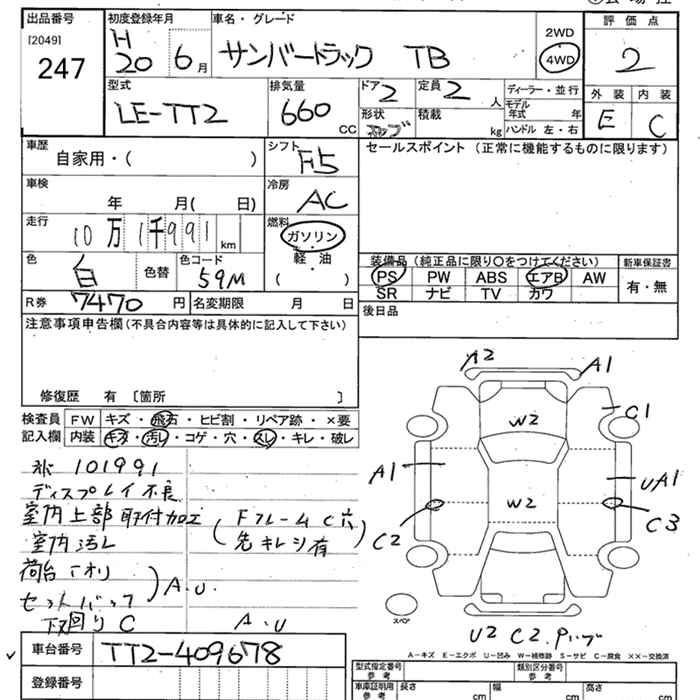 出品番号
[2049]
247
初度登録年月
H
20 6月
車名・グレード
サンバートラック TB
2WD
4WD
評価点
2
型式
LE-TT2
排気量
660
CC
ドア 2
定員 2 人
形状
積載
kg
ディーラー・並行
モデル年式 年
ハンドル 左・右
外装 内装
E C
車歴
自家用・( )
シフト F5
セールスポイント (正常に機能するものに限ります)
車検
年 月( 日)
冷房
AC
走行
10万1千991 km
燃料
ガソリン
軽・油
( )
色
白
色替
色コード
59M
装備品(純正品に限り○をつけてください)
PS PW ABS エアB AW
SR ナビ TV カワ
新車保証書
有・無
R券 7470 円
名変期限 月 日
後日品
注意事項申告欄(不具合内容等は具体的に記入して下さい)
修復歴 有 〔箇所 〕
検査員
記入欄
FW キズ・飛石・ヒビ割・リペア跡・×要
内装 キズ・汚レ・コゲ・穴・スレ・キレ・破レ
101991
ディスプレイ不良
室内上部取付加工
室内汚レ
(Fフレーム C穴
先キレツ有)
荷台
A.U.
セットバック
下回り C
A.U
A2
A1
C1
W2
A1
UA1
W2
C2
C3
スペア
U2 C2.
A-キズ E-エクボ U-凹み W-補修跡 S-サビ C-腐食 ××-交換済
車台番号
TT2-409678
登録番号
型式指定番号
参考
類別区分番号
参考
車庫証明用
参考
長さ cm
幅 cm
高さ cm